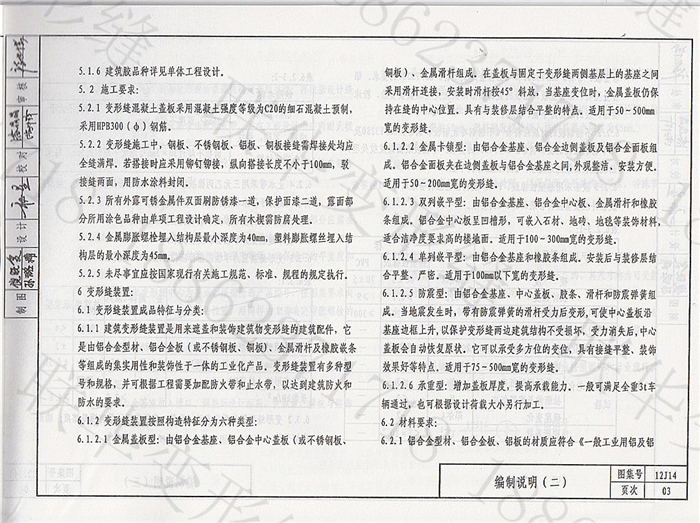 5.1.6 建筑胶品种详见单体工程设计。
5.2 施工要求:
5.2.1 变形缝混凝土盖板采用混凝土强度等级为C20的细石混凝土预制,
采用HPB300(ф)钢筋。
5.2.2 变形缝施工中,钢板、不锈钢板、铝板、铜板接缝需焊接处均应
全缝满焊。若搭接时应采用铆钉铆接,纵向搭接长度不小于100mm,驳
接缝两面,用防水涂料封闭。
5.2.3 所有外露可锈金属件双面刷防锈漆一道,保护面漆二道,露面部
分所用涂色品种由单项工程设计确定,所有木楔需防腐处理。
5.2.4 金属膨胀螺栓埋入结构层最小深度为40mm,塑料膨胀螺丝埋入结
构层的最小深度为45mm。
5.2.5 未尽事宜应按国家现行有关施工规范、标准、规程的规定执行。
6 变形缝装置:
6.1 变形缝装置成品特征与分类:
6.1.1 建筑变形缝装置是用来遮盖和装饰建筑物变形缝的建筑配件,它
是由铝合金型材、铝合金板(或不锈钢板、铜板)、金属滑杆及橡胶嵌条
等组成的集实用性和装饰性于一体的工业化产品。变形缝装置有多种型
号和规格,并可根据工程需要加配防火带和止水带,以达到建筑防火和
防水的要求。
6.1.2 变形缝装置按照构造特征分为六种类型:
6.1.2.1 金属盖板型:由铝合金基座、铝合金中心盖板(或不锈钢板、
铜板)、金属滑杆组成。在盖板与固定于变形缝两侧基层上的基座之间
采用滑杆连接,安装时滑杆按45°斜放,当基座变位时,金属盖板仍保
持在缝的中心位置。具有与装修层结合平整的特点。适用于50~500mm
宽的变形缝。
6.1.2.2 金属卡锁型:由铝合金基座、铝合金边侧盖板及铝合金面板组
成。铝合金面板夹在边侧盖板与铝合金基座之间,外观整洁、安装方便。
适用于50~200mm宽的变形缝。
6.1.2.3 双列嵌平型:由铝合金基座、铝合金中心板、金属滑杆和橡胶
条组成。铝合金中心板呈凹槽形,可嵌入石材、地砖、地毯等装饰材料,
适合洁净度要求高的楼地面。适用于100~300mm宽的变形缝。
6.1.2.4 单列嵌平型:由铝合金基座和橡胶条组成。安装后与装修层结
合平整、严密。适用于100mm以下宽的变形缝。
6.1.2.5 防震型:由铝合金基座、中心盖板、胶条、滑杆和防震弹簧组
成。当地震发生时,带有防震弹簧的滑杆受力后变形,可使中心盖板沿
基座边框上升,以保护变形缝两边建筑结构不受损坏,受力消失后,中心
盖板会自动恢复原状。它可以承受多方位的变位,具有接缝平整、装饰
效果好等特点。适用于75~500mm宽的变形缝。
6.1.2.6 承重型:增加盖板厚度,提高承载能力。一般可满足全重3t车
辆通过,也可根据设计荷载大小另行加工。
6.2 材料要求:
6.2.1 铝合金型材、铝合金板、铝板的材质应符合《一般工业用铝及铝
编制说明(二)
图集号 12J14
页次 03
审核
校对
设计
制图